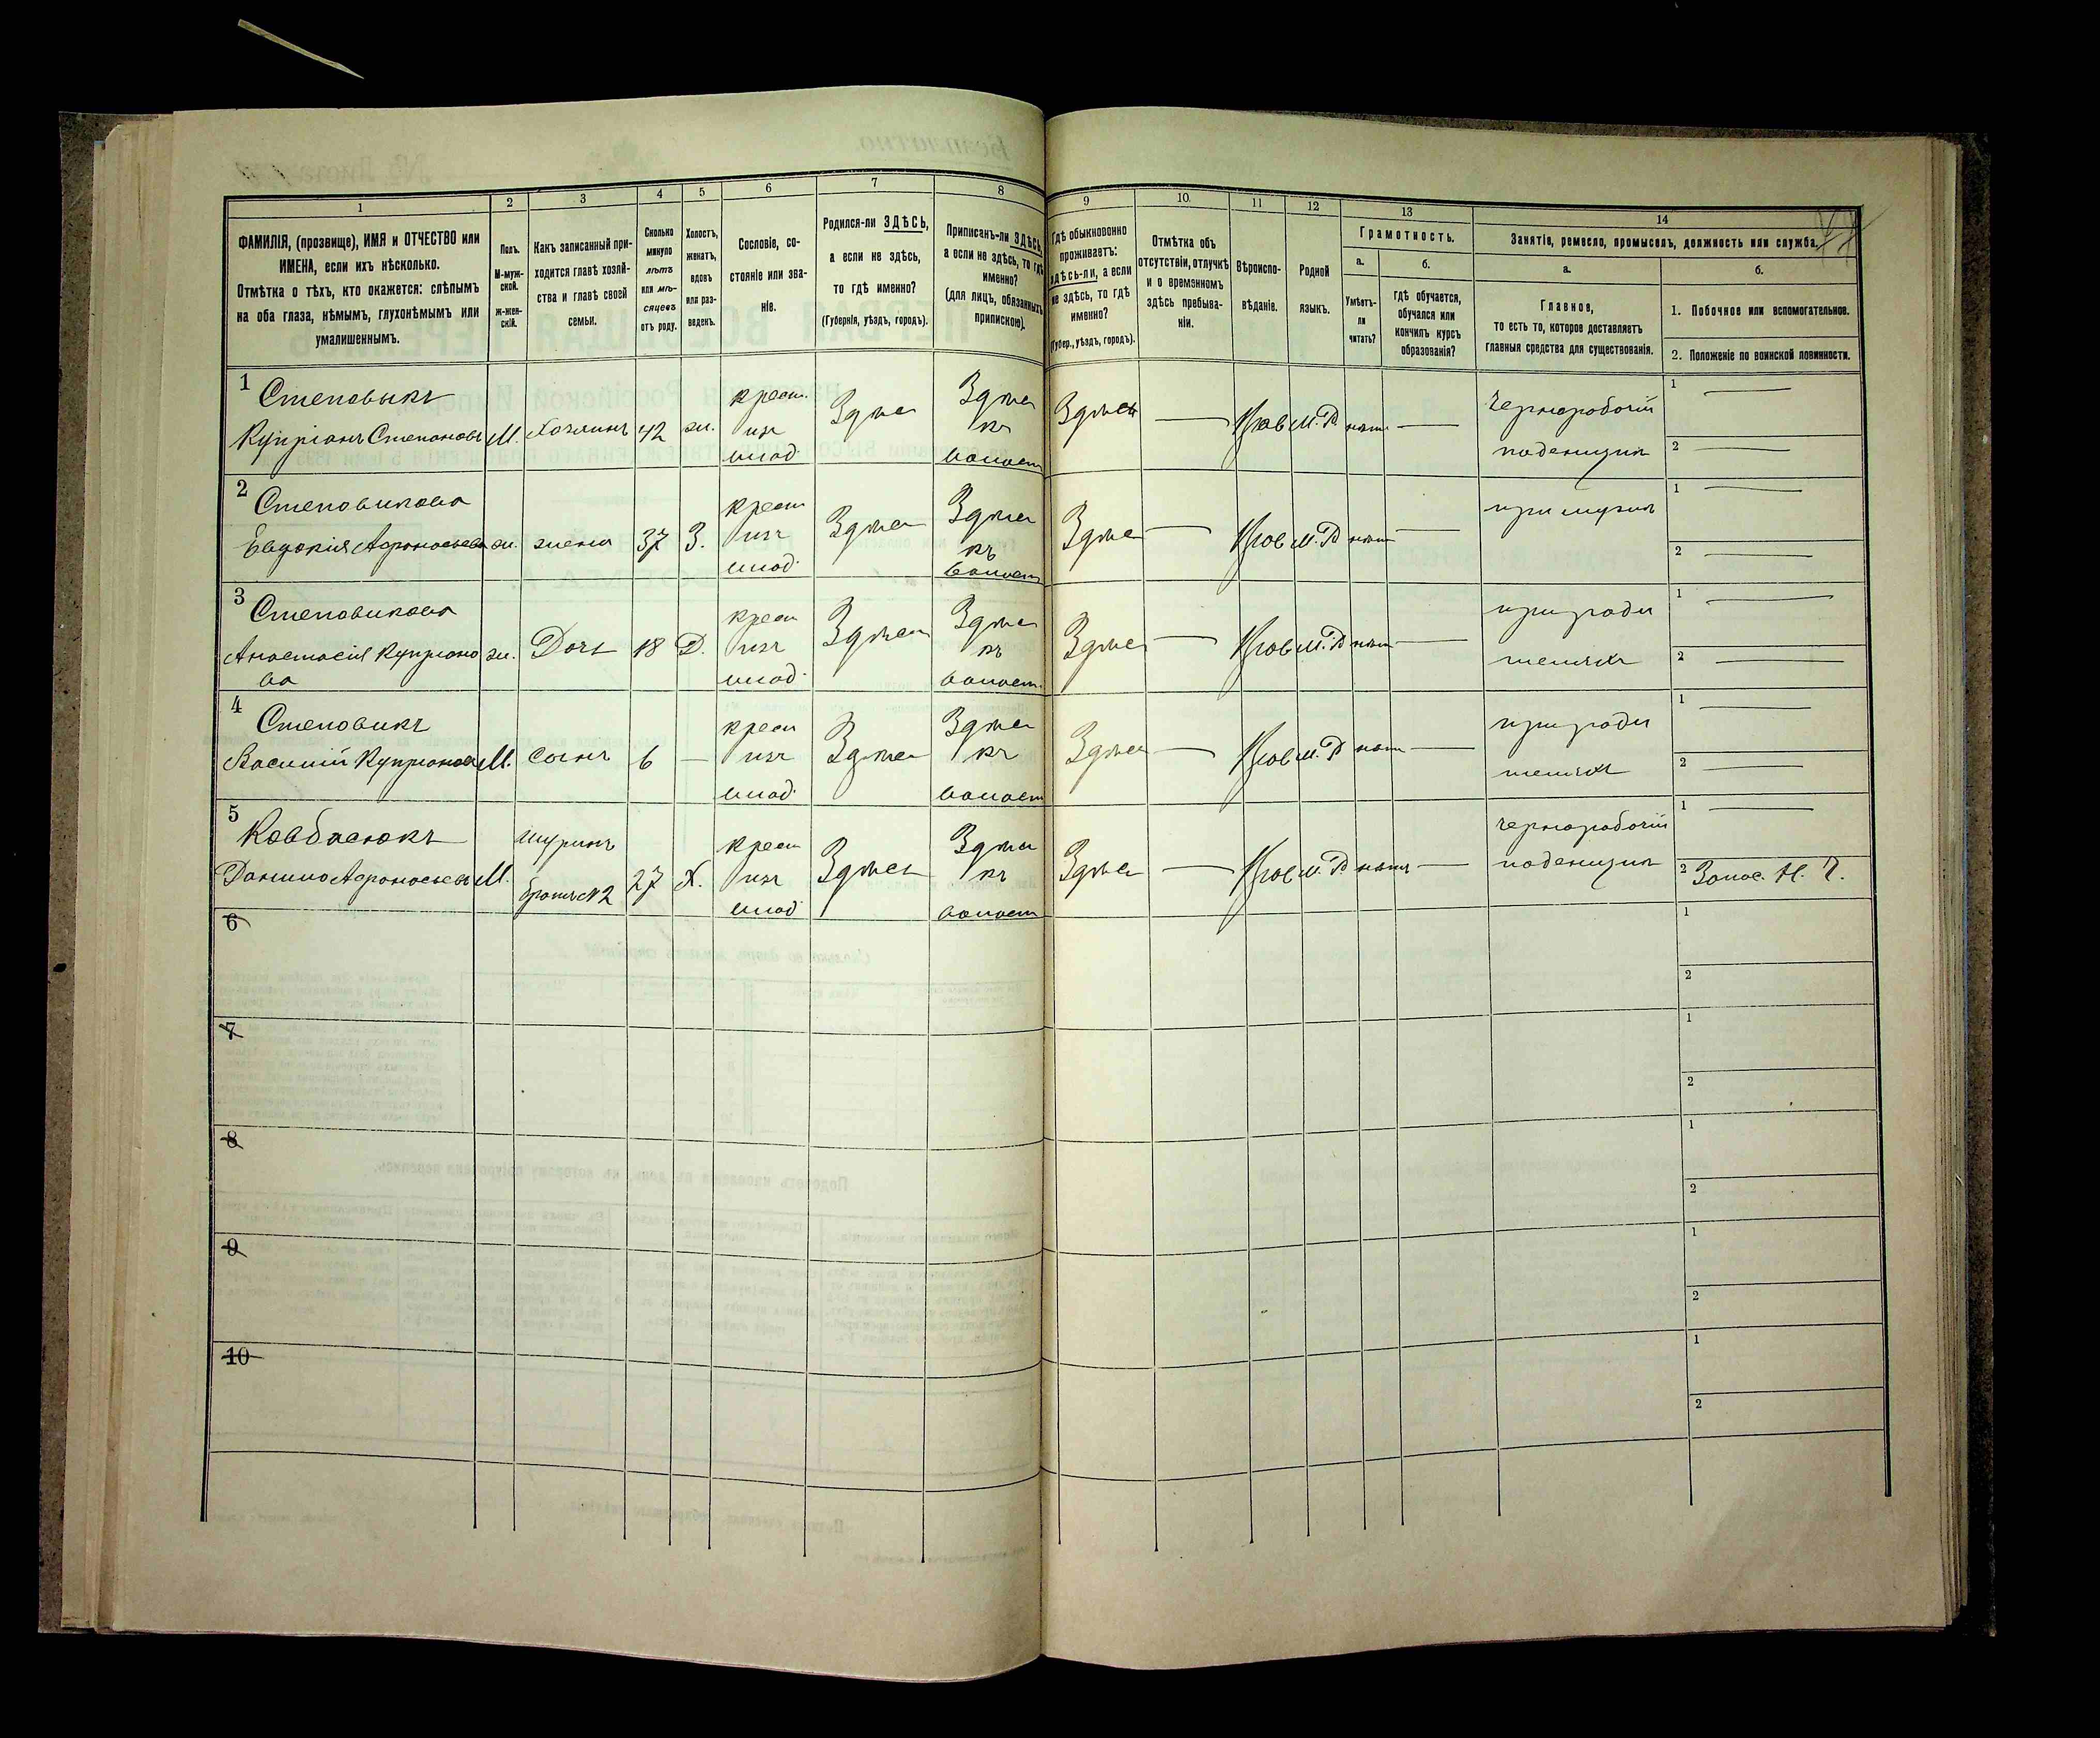 1
2
3
4
5
6
7
8
9
10.
11
12
13
14
ФАМИЛІЯ, (прозвище), ИМЯ и ОТЧЕСТВО или
ИМЕНА, если ихъ нѣсколько.
Отмѣтка о тѣхъ, кто окажется: слѣпымъ
на оба глаза, нѣмымъ, глухонѣмымъ или
умалишеннымъ.
Полъ.
М-муж-
ской.
ж-жен-
скій.
Какъ записанный при-
ходится главѣ хозяй-
ства и главѣ своей
семьи.
Сколько
минуло
лѣтъ
или мѣ-
сяцевъ
отъ роду.
Холостъ,
женатъ,
вдовъ
или раз-
веденъ.
Сословіе, со-
стояніе или зва-
ніе.
Родился-ли ЗДѢСЬ,
а если не здѣсь,
то гдѣ именно?
(Губернія, уѣздъ, городъ).
Приписанъ-ли ЗДѢСЬ,
а если не здѣсь, то гдѣ
именно?
(для лицъ, обязанныхъ
припискою).
Гдѣ обыкновенно
проживаетъ:
здѣсь-ли, а если
не здѣсь, то гдѣ
именно?
(Губер., уѣздъ, городъ).
Отмѣтка объ
отсутствіи, отлучкѣ
и о временномъ
здѣсь пребыва-
ніи.
Вѣроиспо-
вѣданіе.
Родной
языкъ.
Грамотность.
а.
Умѣетъ-
ли
читать?
б.
гдѣ обучается,
обучался или
кончилъ курсъ
образованія?
Занятіе, ремесло, промыселъ, должность или служба.
а.
Главное,
то есть то, которое доставляетъ
главныя средства для существованія.
б.
1. Побочное или вспомогательное.
2. Положеніе по воинской повинности.
1
Степовыкъ
Купріянъ Степановъ М. Хозяинъ 42 ж.
крест. изъ влад.
Здѣсь
Здѣсь къ волост
Здѣсь
Прав М.Р. нѣтъ
Чернорабочій
поденщик
1
2
2
Степовикова
Евдокія Афанасьева ж. жена 37 З.
крест изъ влад.
Здѣсь
Здѣсь къ волост
Здѣсь
Прав М.Р нѣтъ
при мужѣ
1
2
3
Степовикова
Анастасія Купріяно
ва
ж. Дочь 18 Д.
крест изъ влад.
Здѣсь
Здѣсь къ волост.
Здѣсь
Прав М.Р нѣтъ
при роди
теляхъ
1
2
4
Степовикъ
Василій Купріановъ М. сынъ 6 —
крест изъ влад.
Здѣсь
Здѣсь къ волост
Здѣсь
Прав М.Р нѣтъ
при роди
теляхъ
1
2
5
Ковбасюкъ
Данило Афанасьевъ М.
шуринъ
братъ №2
27 Х.
крест изъ влад
Здѣсь
Здѣсь къ волост
Здѣсь
Прав М.Р нѣтъ
чернорабочій
поденщик
1
2 Запас. Н. Ч.
6
1
2
7
1
2
8
1
2
9
1
2
10
1
2